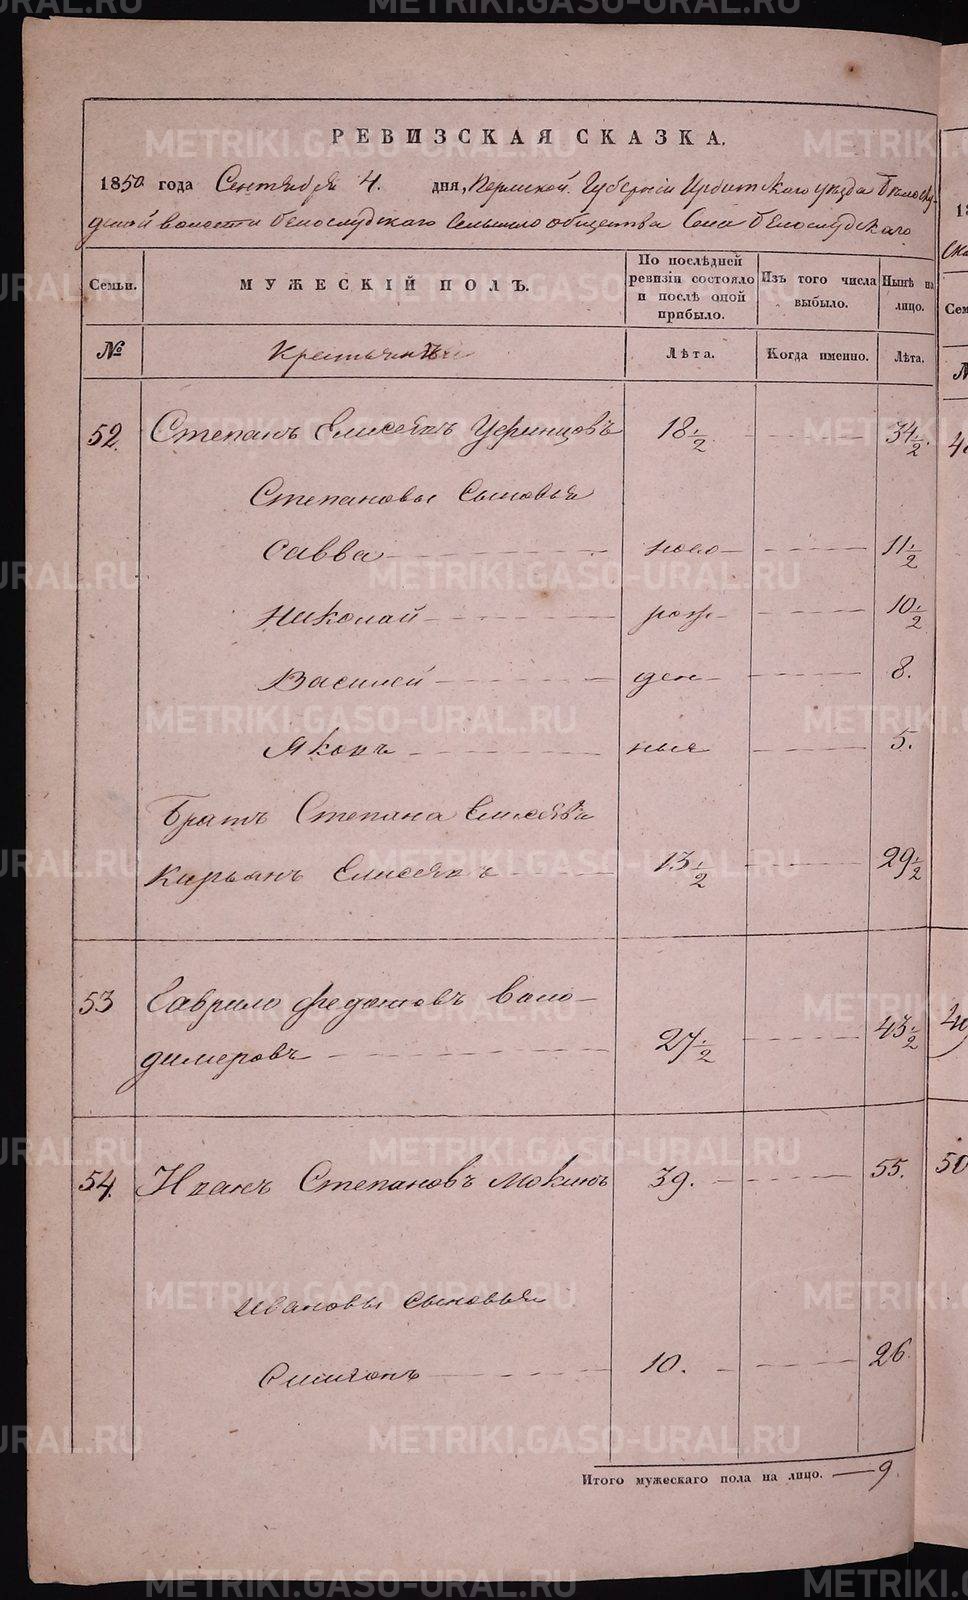 РЕВИЗСКАЯ СКАЗКА.
1850 года Сентября 4. дня, Пермской Губернии Ирбитскаго уезда Белослу-
дской волости Белослудскаго Сельскаго общества Села Белослудскаго
Семьи.
МУЖЕСКІЙ ПОЛЪ.
По послѣдней ревизіи состояло и послѣ оной прибыло.
Изъ того числа выбыло.
Нынѣ на лицо.
№
Крестьяне
Лѣта.
Когда именно.
Лѣта.
52. Степанъ Елисеевъ Уфинцовъ 18 1/2 34 1/2.
Степановы Сыновья
Савва ново- 11 1/2
Николай рож- 10 1/2
Василей ден- 8.
Яковъ ныя 5.
Братъ Степана Елисеева
Кирьянъ Елисеевъ 13 1/2 29 1/2
53 Гаврило Федотовъ Воло-
димеровъ 27 1/2 43 1/2
54. Иванъ Степановъ Мокинъ 39. 55.
Ивановы сыновья
Симеонъ 10. 26.
Итого мужескаго пола на лицо. — 9.
50
METRIKI.GASO-URAL.RU